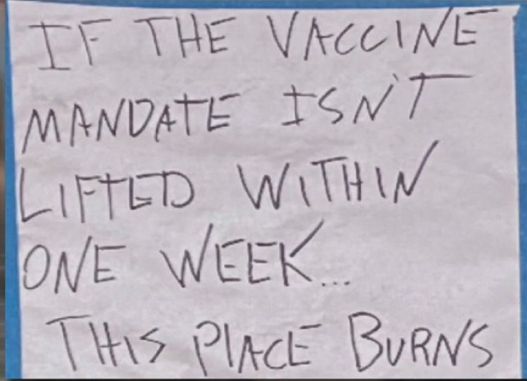 IF THE VACCINE
MANDATE ISN'T
LIFTED WITHIN
ONE WEEK...
THIS PLACE BURNS